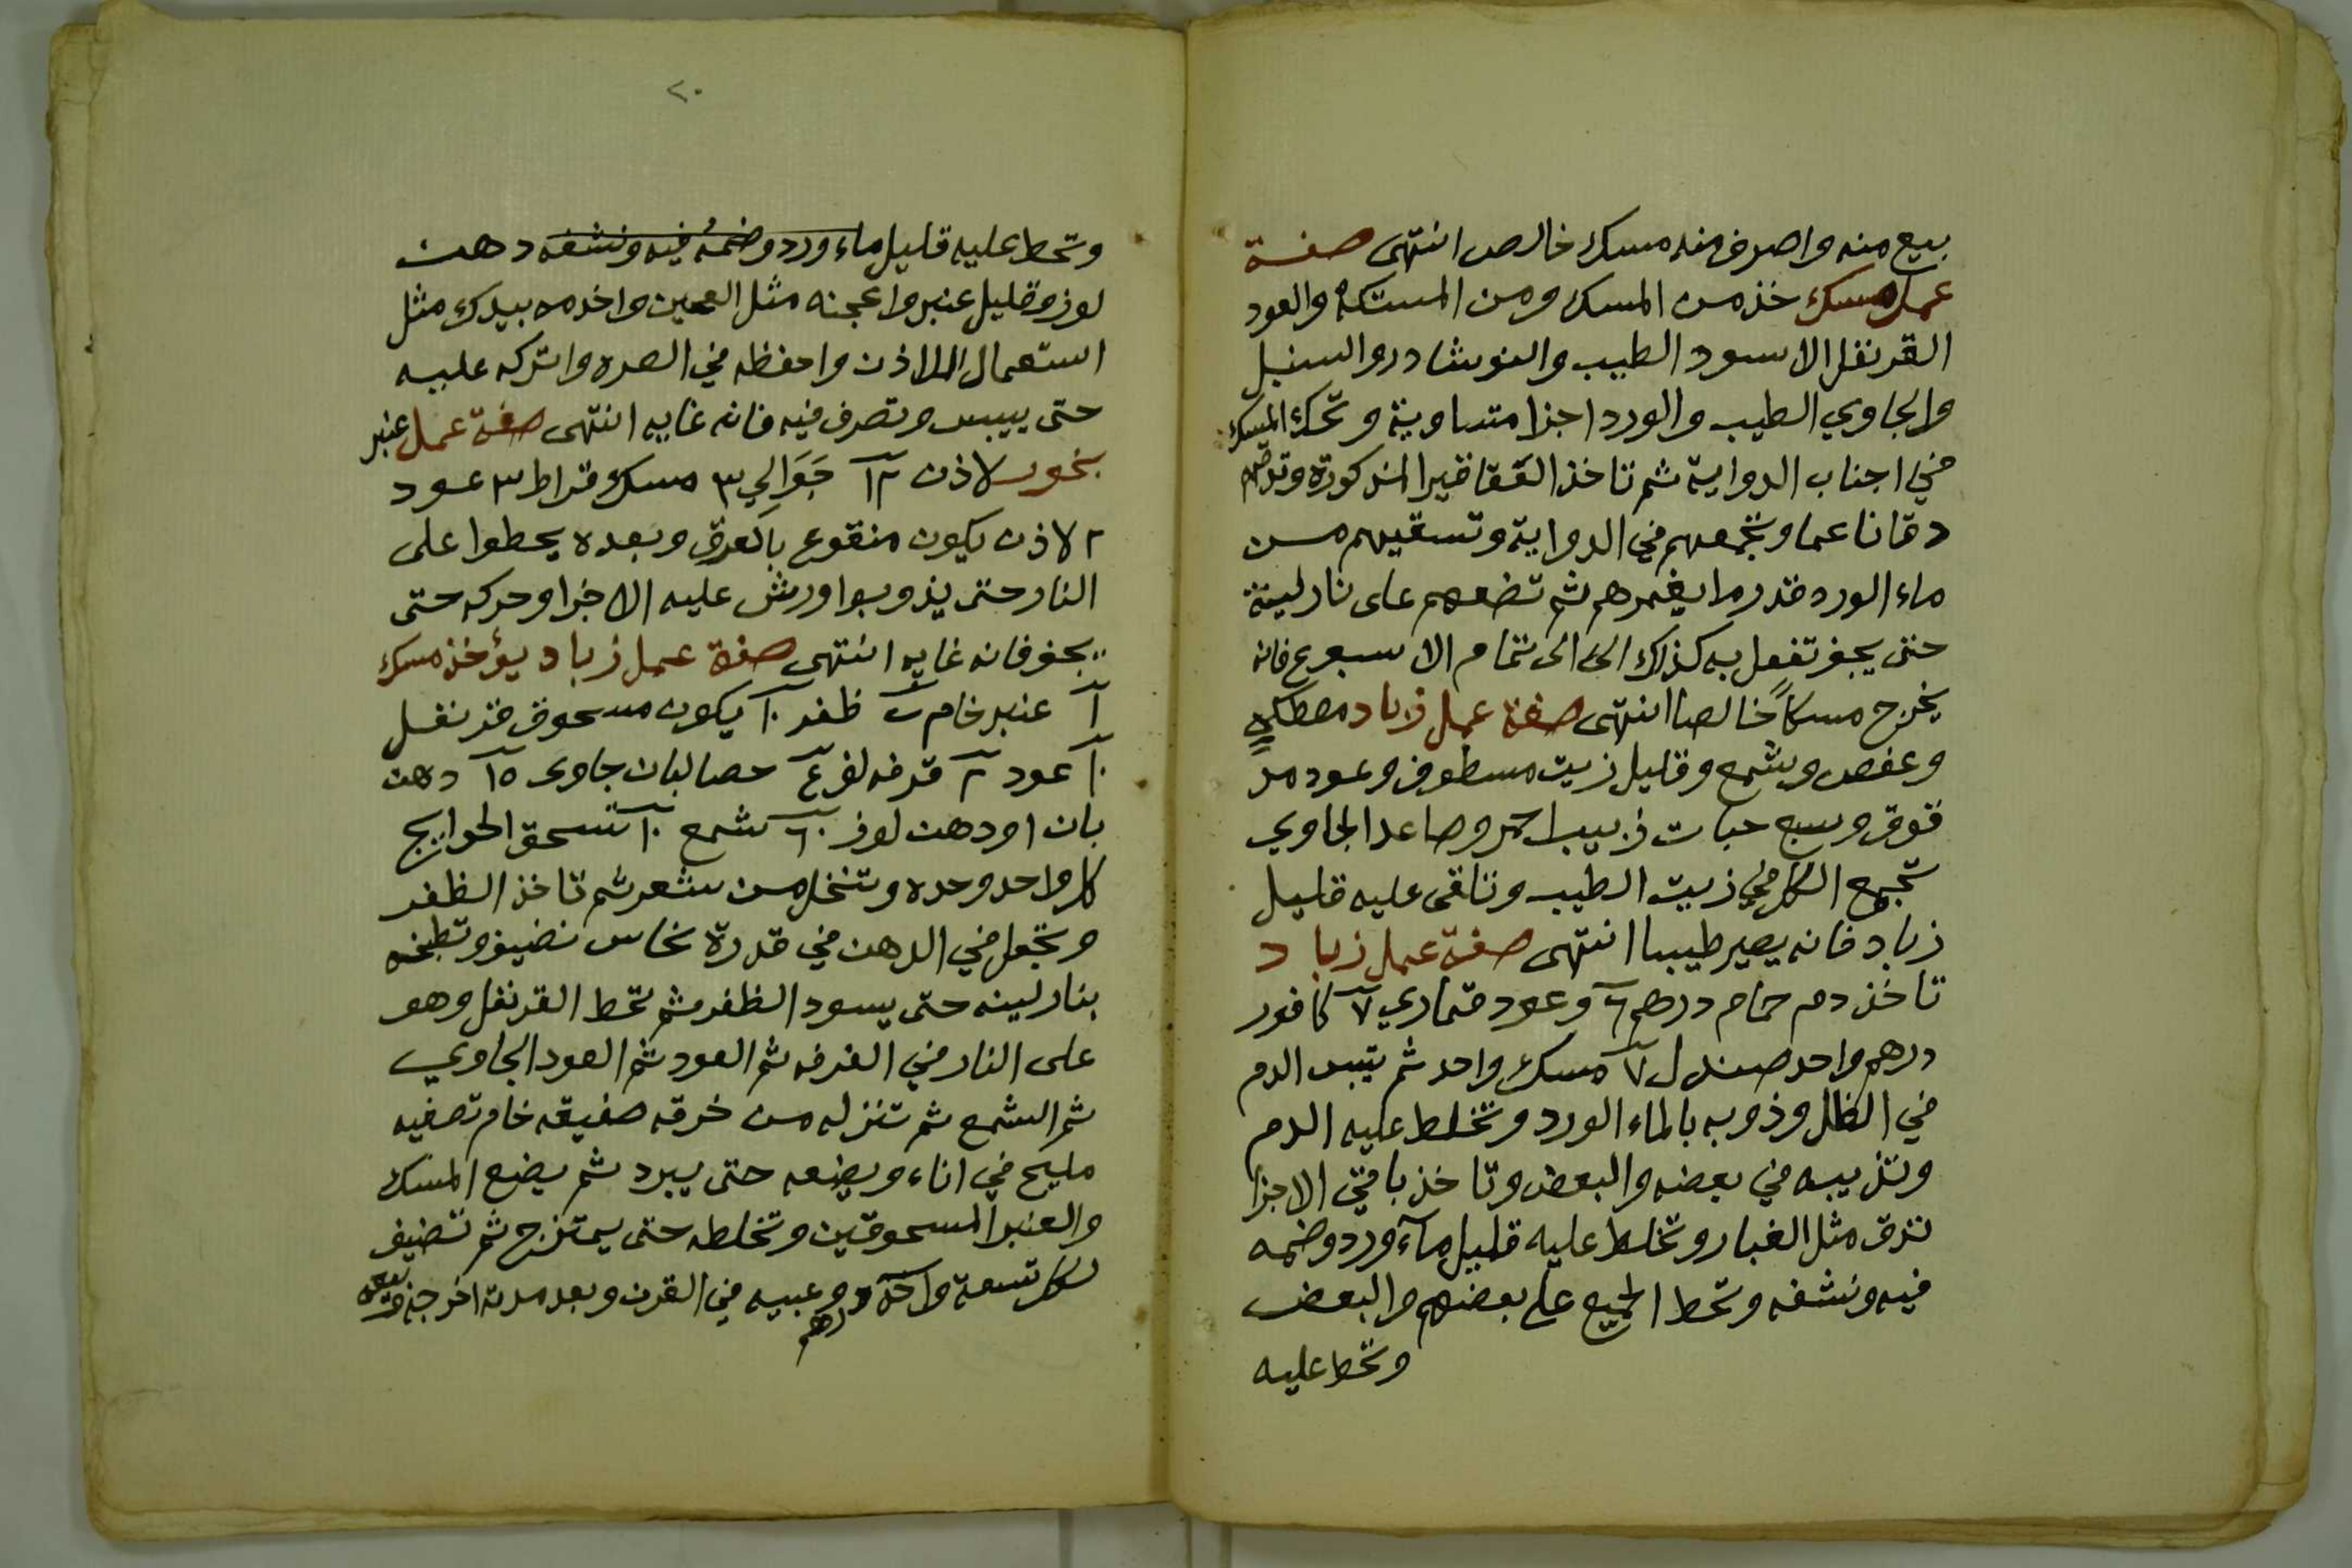 بيع منه واصرف منه مسك خالص انتهى صفة
عمل مسك خذ من المسك ومن المستكه والعود
القرنفل الاسود الطيب والنوشادر والسنبل
والجاوي الطيب والورد اجزا متساوية وتحك المسك
في اجناب الدواية ثم تاخذ العقاقير المذكورة وتدقهم
دقا ناعما وتجمعهم في الدواية وتسقيهم من
ماء الورد قدر ما يغمرهم ثم تضعهم على نار لينة
حتى يجف تفعل به كذلك الى الى تمام الاسبوع فانه
يخرج مسكاً خالصا انتهى صفة عمل زباد مصطكي
وعفص وشمع وقليل زيت مسطوف وعود مد
قوق وسبع حبات زبيب احمر وصاعد الجاوي
تجمع الكل في زيت الطيب وتلقى عليه قليل
زباد فانه يصير طيبا انتهى صفة عمل زباد
تاخذ دم حمام درهم ٦ وعود قماري ٧ كافور
درهم واحد صندل ٧ مسك واحد ثم تيبس الدم
في الظل وذوبه بالماء الورد وتخلط عليه الدم
وتذيبه في بعضه والبعض وتاخذ باقي الاجزا
تدق مثل الغبار وتخلط عليه قليل مآء ورد وضمه
فيه ونشفه وتحط الجميع على بعضهم والبعض
وتحط عليه
٢٠
وتحط عليه قليل ماء ورد وضمه فيه ونشفه دهن
لوز وقليل عنبر واعجنه مثل العجين واخدمه بيدك مثل
استعمال اللاذن واحفظه في الصره واتركه عليه
حتى ييبس وتصرف فيه فانه غايه انتهى صفة عمل عنبر
بخور لاذن ١٢ جَوَالِي ٣ مسك قراط ٣ عود
٢ لاذن يكون منقوع بالعرق وبعده يحطوا على
النار حتى يذوبوا ورش عليه الاجزا وحركه حتى
يجف فانه غايه انتهى صفة عمل زباد يؤخذ مسك
١ عنبر خام ظفر ١٠ يكون مسحوق قرنفل
١٠ عود ٢ قرفه لف ٤ حصا لبان جاوى ١٥ دهن
بان او دهن لوز ٦٠ شمع ١٠ تسحق الحوايج
كل واحد وحده وتنخل من شعر ثم تاخذ الظفر
وتجعل في الدهن في قدرة نحاس نضيف وتطبخه
بنار لينه حتى يسود الظفر ثم تحط القرنفل وهو
على النار في القرفه ثم العود ثم العود الجاوي
ثم الشمع ثم تنزله من خرقه صفيقه خام وتصفيه
مليح في اناء ويضعه حتى يبرد ثم يضع المسك
والعنبر المسحوقين وتخلطه حتى يمتزج ثم تضيف
لكل تسعة واحد وعبيه في القرن وبعد مدة اخرجه